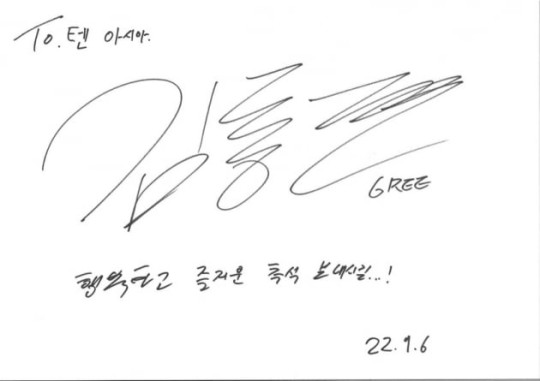 To. 텐 아시아.
김동현
GREE
행복하고 즐거운 추석 보내시길..!
22.9.6